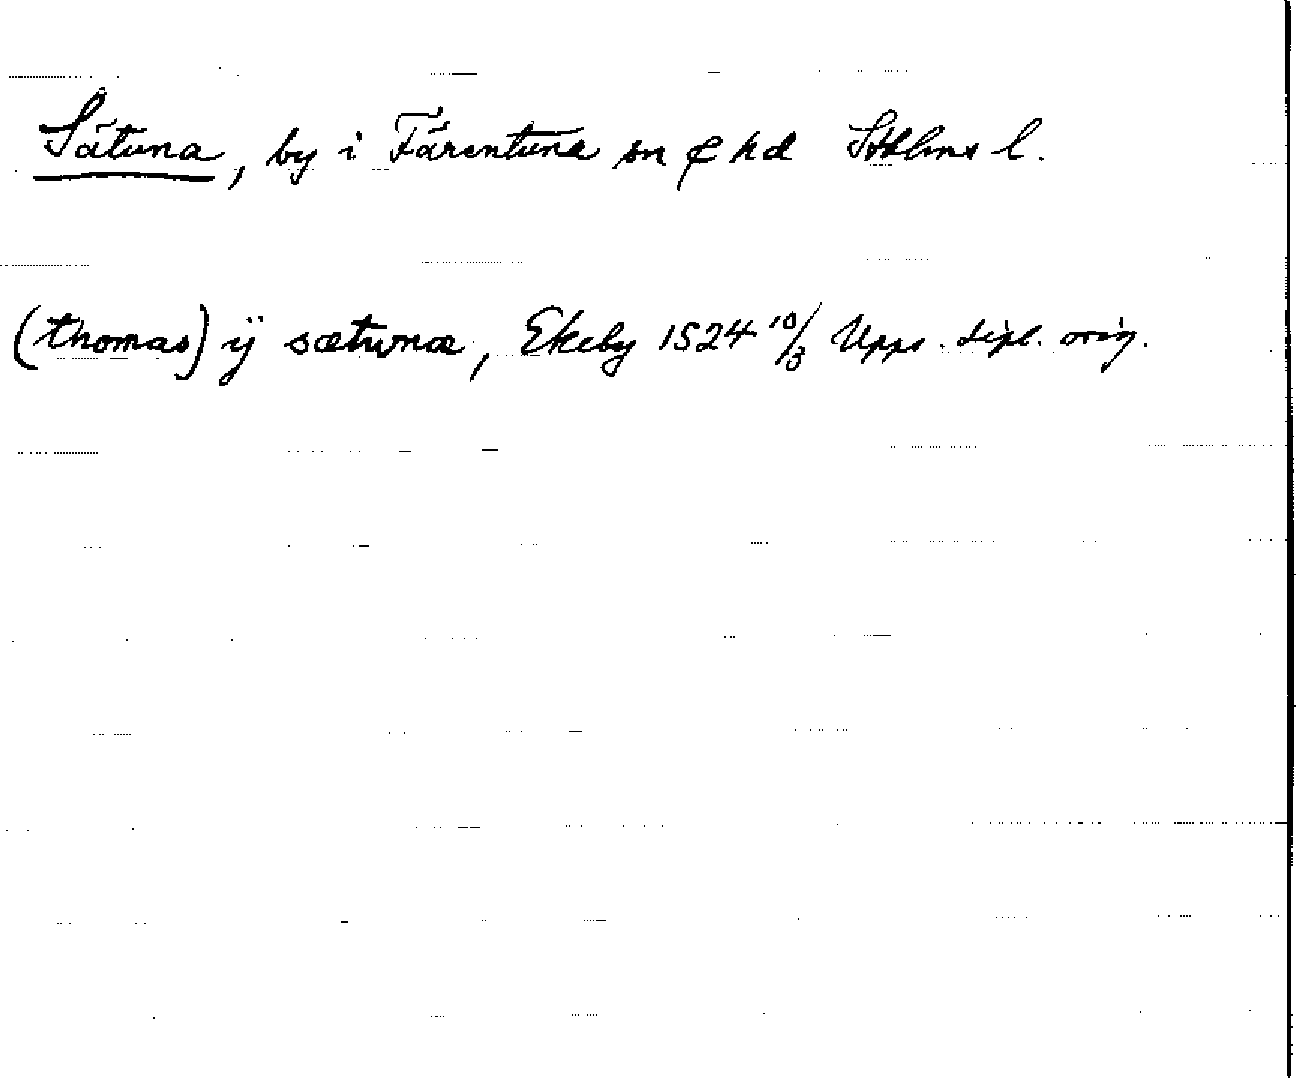 Sätuna, by i Färentuna sn & hd Sthlms l.
(thomas) ÿ sætwnæ, Ekeby 1524 10/3 Upps. dipl. orig.